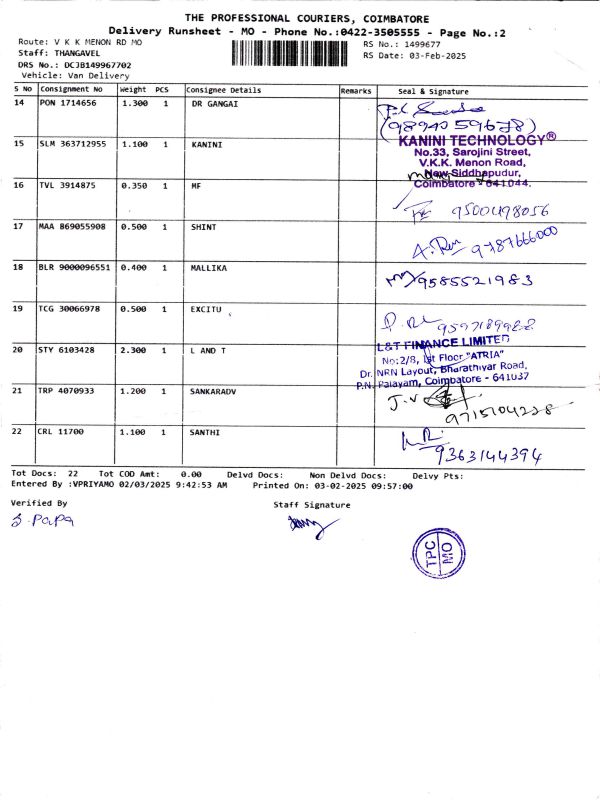 THE PROFESSIONAL COURIERS, COIMBATORE
Delivery Runsheet - MO - Phone No.:0422-3505555 - Page No.:2
Route: V K K MENON RD MO RS No.: 1499677
Staff: THANGAVEL RS Date: 03-Feb-2025
DRS No.: DCJB149967702
Vehicle: Van Delivery
S No Consignment No Weight PCS Consignee Details Remarks Seal & Signature
14 PON 1714656 1.300 1 DR GANGAI
(9894059678)
15 SLM 363712955 1.100 1 KANINI
KANINI TECHNOLOGY®
No.33, Sarojini Street,
V.K.K. Menon Road,
New Siddhapudur,
Coimbatore - 641 044.
16 TVL 3914875 0.350 1 MF
9500498056
17 MAA 869055908 0.500 1 SHINT
9787666000
18 BLR 9000096551 0.400 1 MALLIKA
9585521983
19 TCG 30066978 0.500 1 EXCITU
9597189988
20 STY 6103428 2.300 1 L AND T
L&T FINANCE LIMITED
No:2/8, Ist Floor "ATRIA"
Dr. NRN Layout, Bharathiyar Road,
P.N. Palayam, Coimbatore - 641037
21 TRP 4070933 1.200 1 SANKARADV
J.V
9715104238
22 CRL 11700 1.100 1 SANTHI
9363144394
Tot Docs: 22 Tot COD Amt: 0.00 Delvd Docs: Non Delvd Docs: Delvy Pts:
Entered By :VPRIYAMO 02/03/2025 9:42:53 AM Printed On: 03-02-2025 09:57:00
Verified By Staff Signature
S. PaPa
TPC
MO